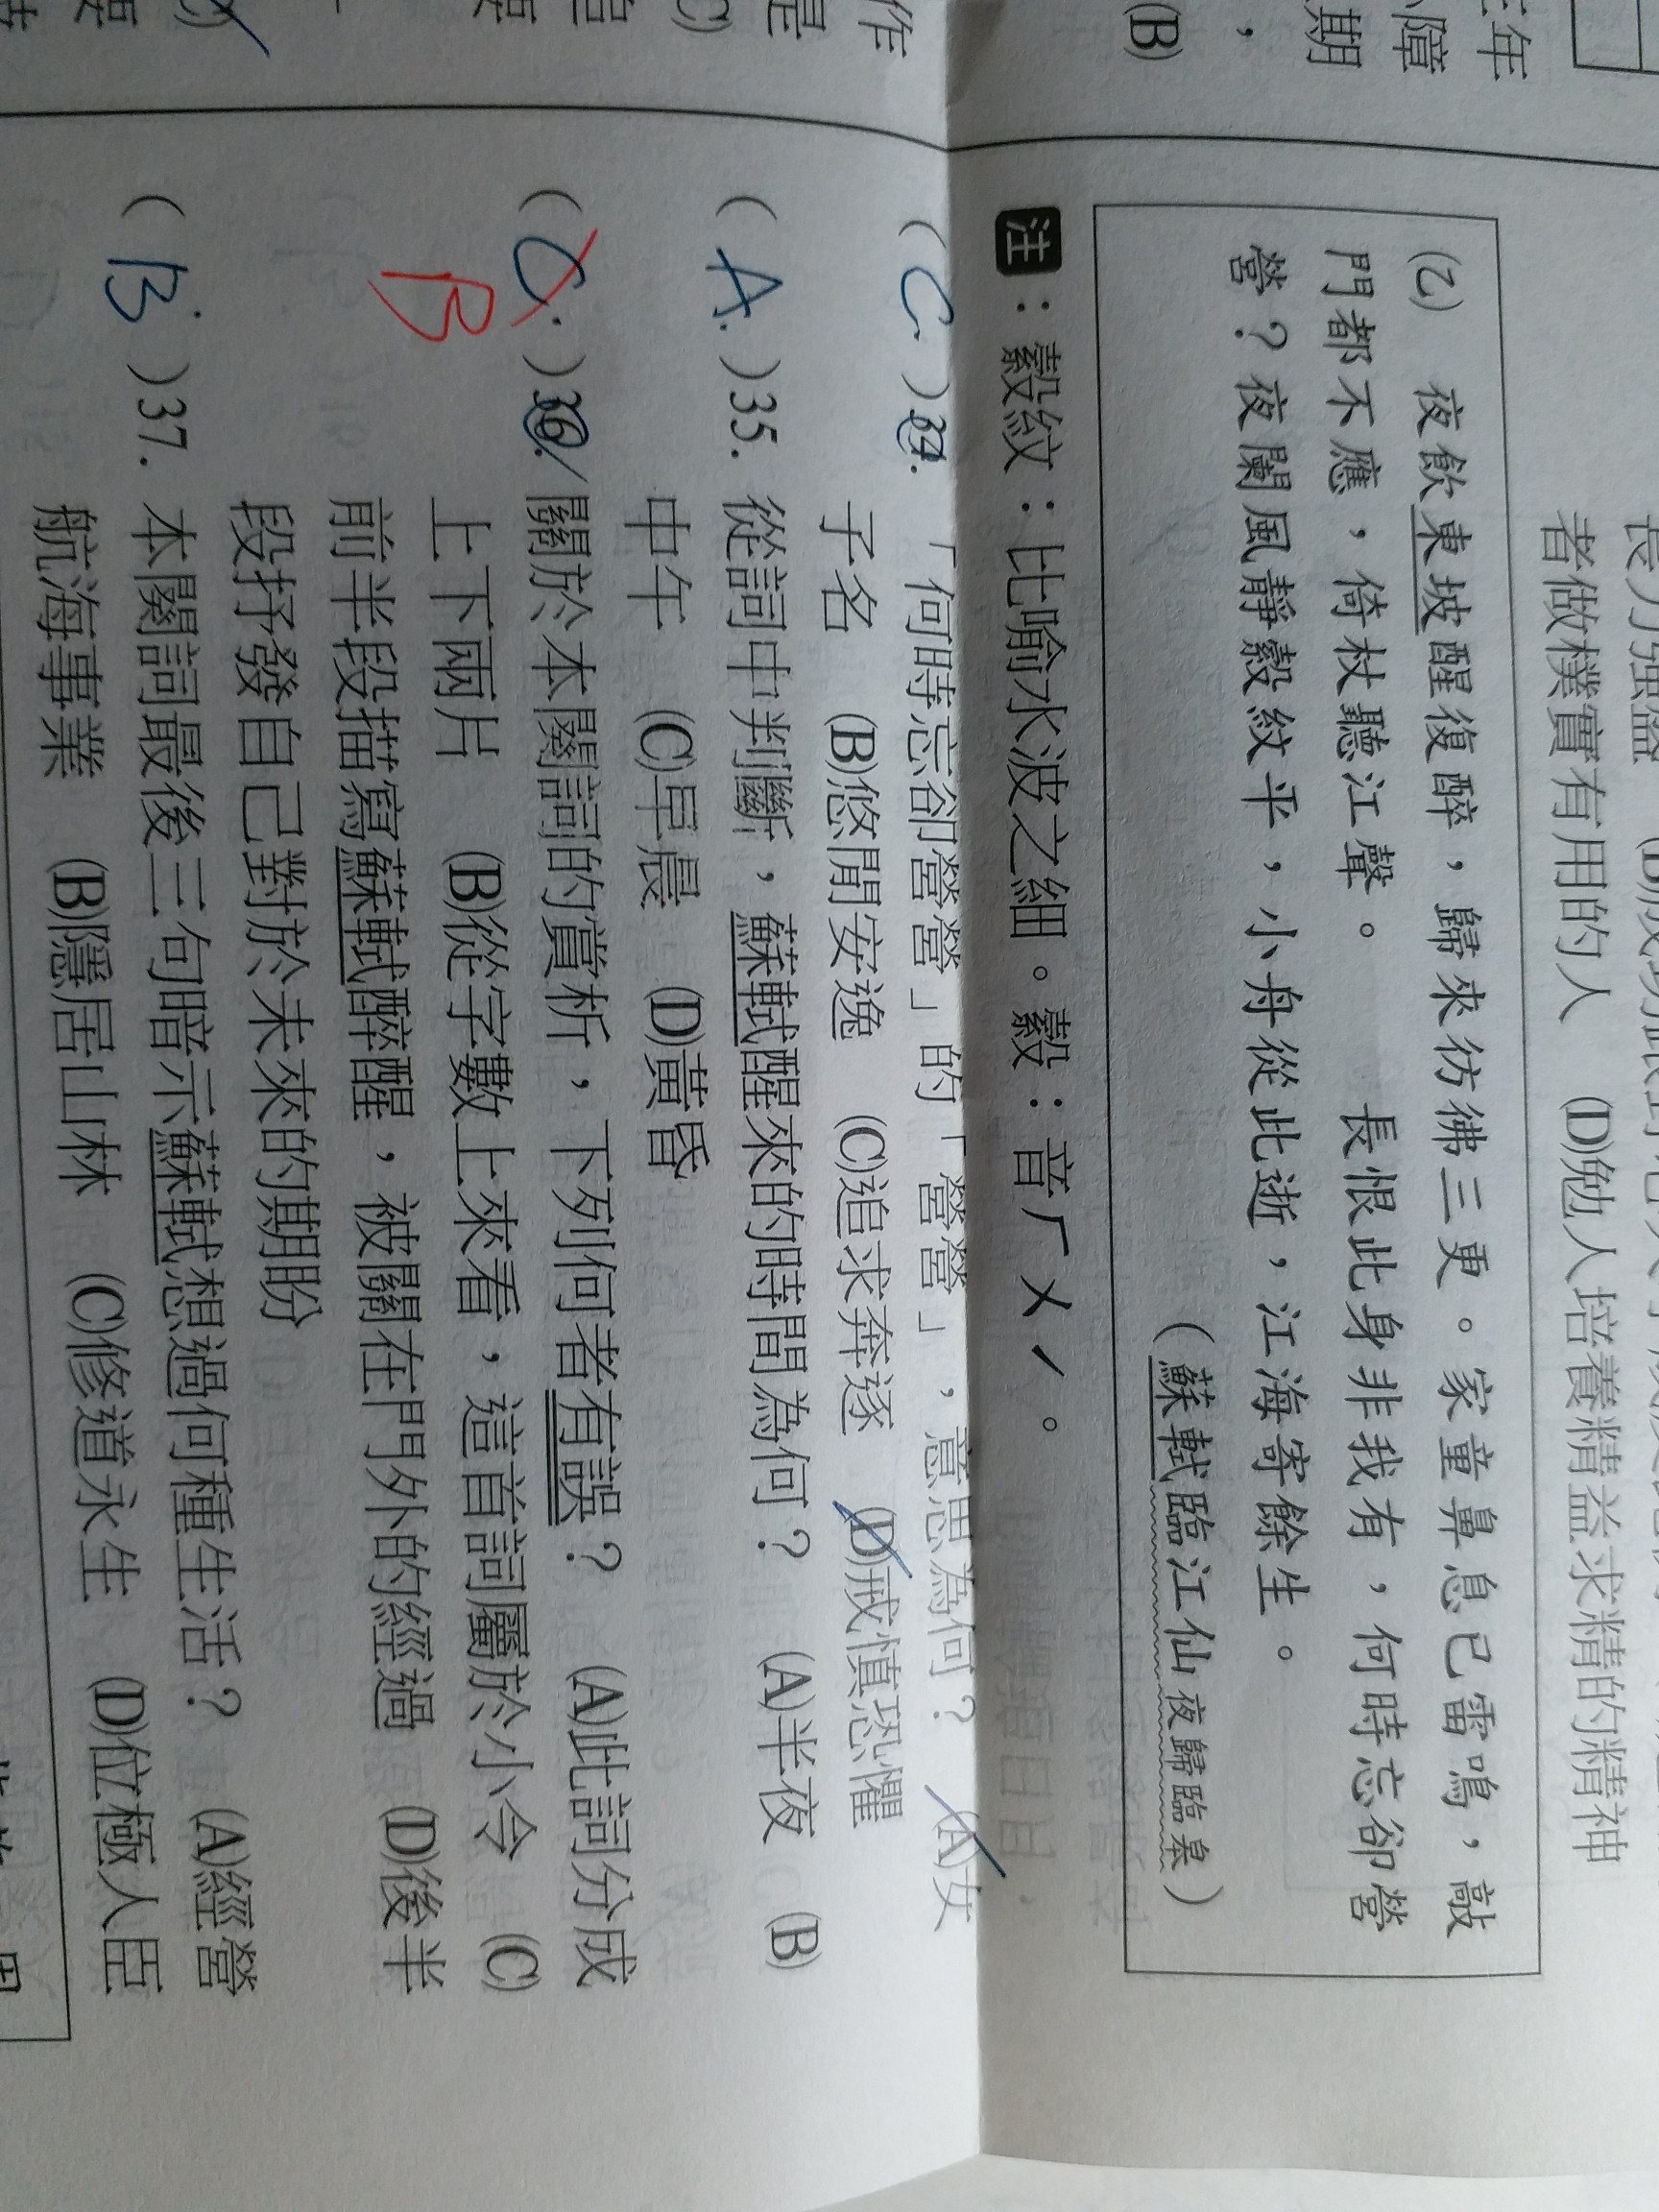 三年
小障
期
，
(B)
作
是
長力強盛
者做樸實有用的人　(D)勉人培養精益求精的精神
(乙)　夜飲東坡醒復醉，歸來彷彿三更。家童鼻息已雷鳴，敲
門都不應，倚杖聽江聲。　　長恨此身非我有，何時忘卻營
營？夜闌風靜縠紋平，小舟從此逝，江海寄餘生。
（蘇軾臨江仙夜歸臨皋）
注：縠紋：比喻水波之細。縠：音ㄏㄨˊ。
( C )34.「何時忘卻營營」的「營營」，意思為何？　(A)女
子名　(B)悠閒安逸　(C)追求奔逐　(D)戒慎恐懼
( A )35. 從詞中判斷，蘇軾醒來的時間為何？　(A)半夜　(B)
中午　(C)早晨　(D)黃昏
( C )36. 關於本闋詞的賞析，下列何者有誤？　(A)此詞分成
B
上下兩片　(B)從字數上來看，這首詞屬於小令　(C)
前半段描寫蘇軾醉醒，被關在門外的經過　(D)後半
段抒發自己對於未來的期盼
( B )37. 本闋詞最後三句暗示蘇軾想過何種生活？　(A)經營
航海事業　(B)隱居山林　(C)修道永生　(D)位極人臣